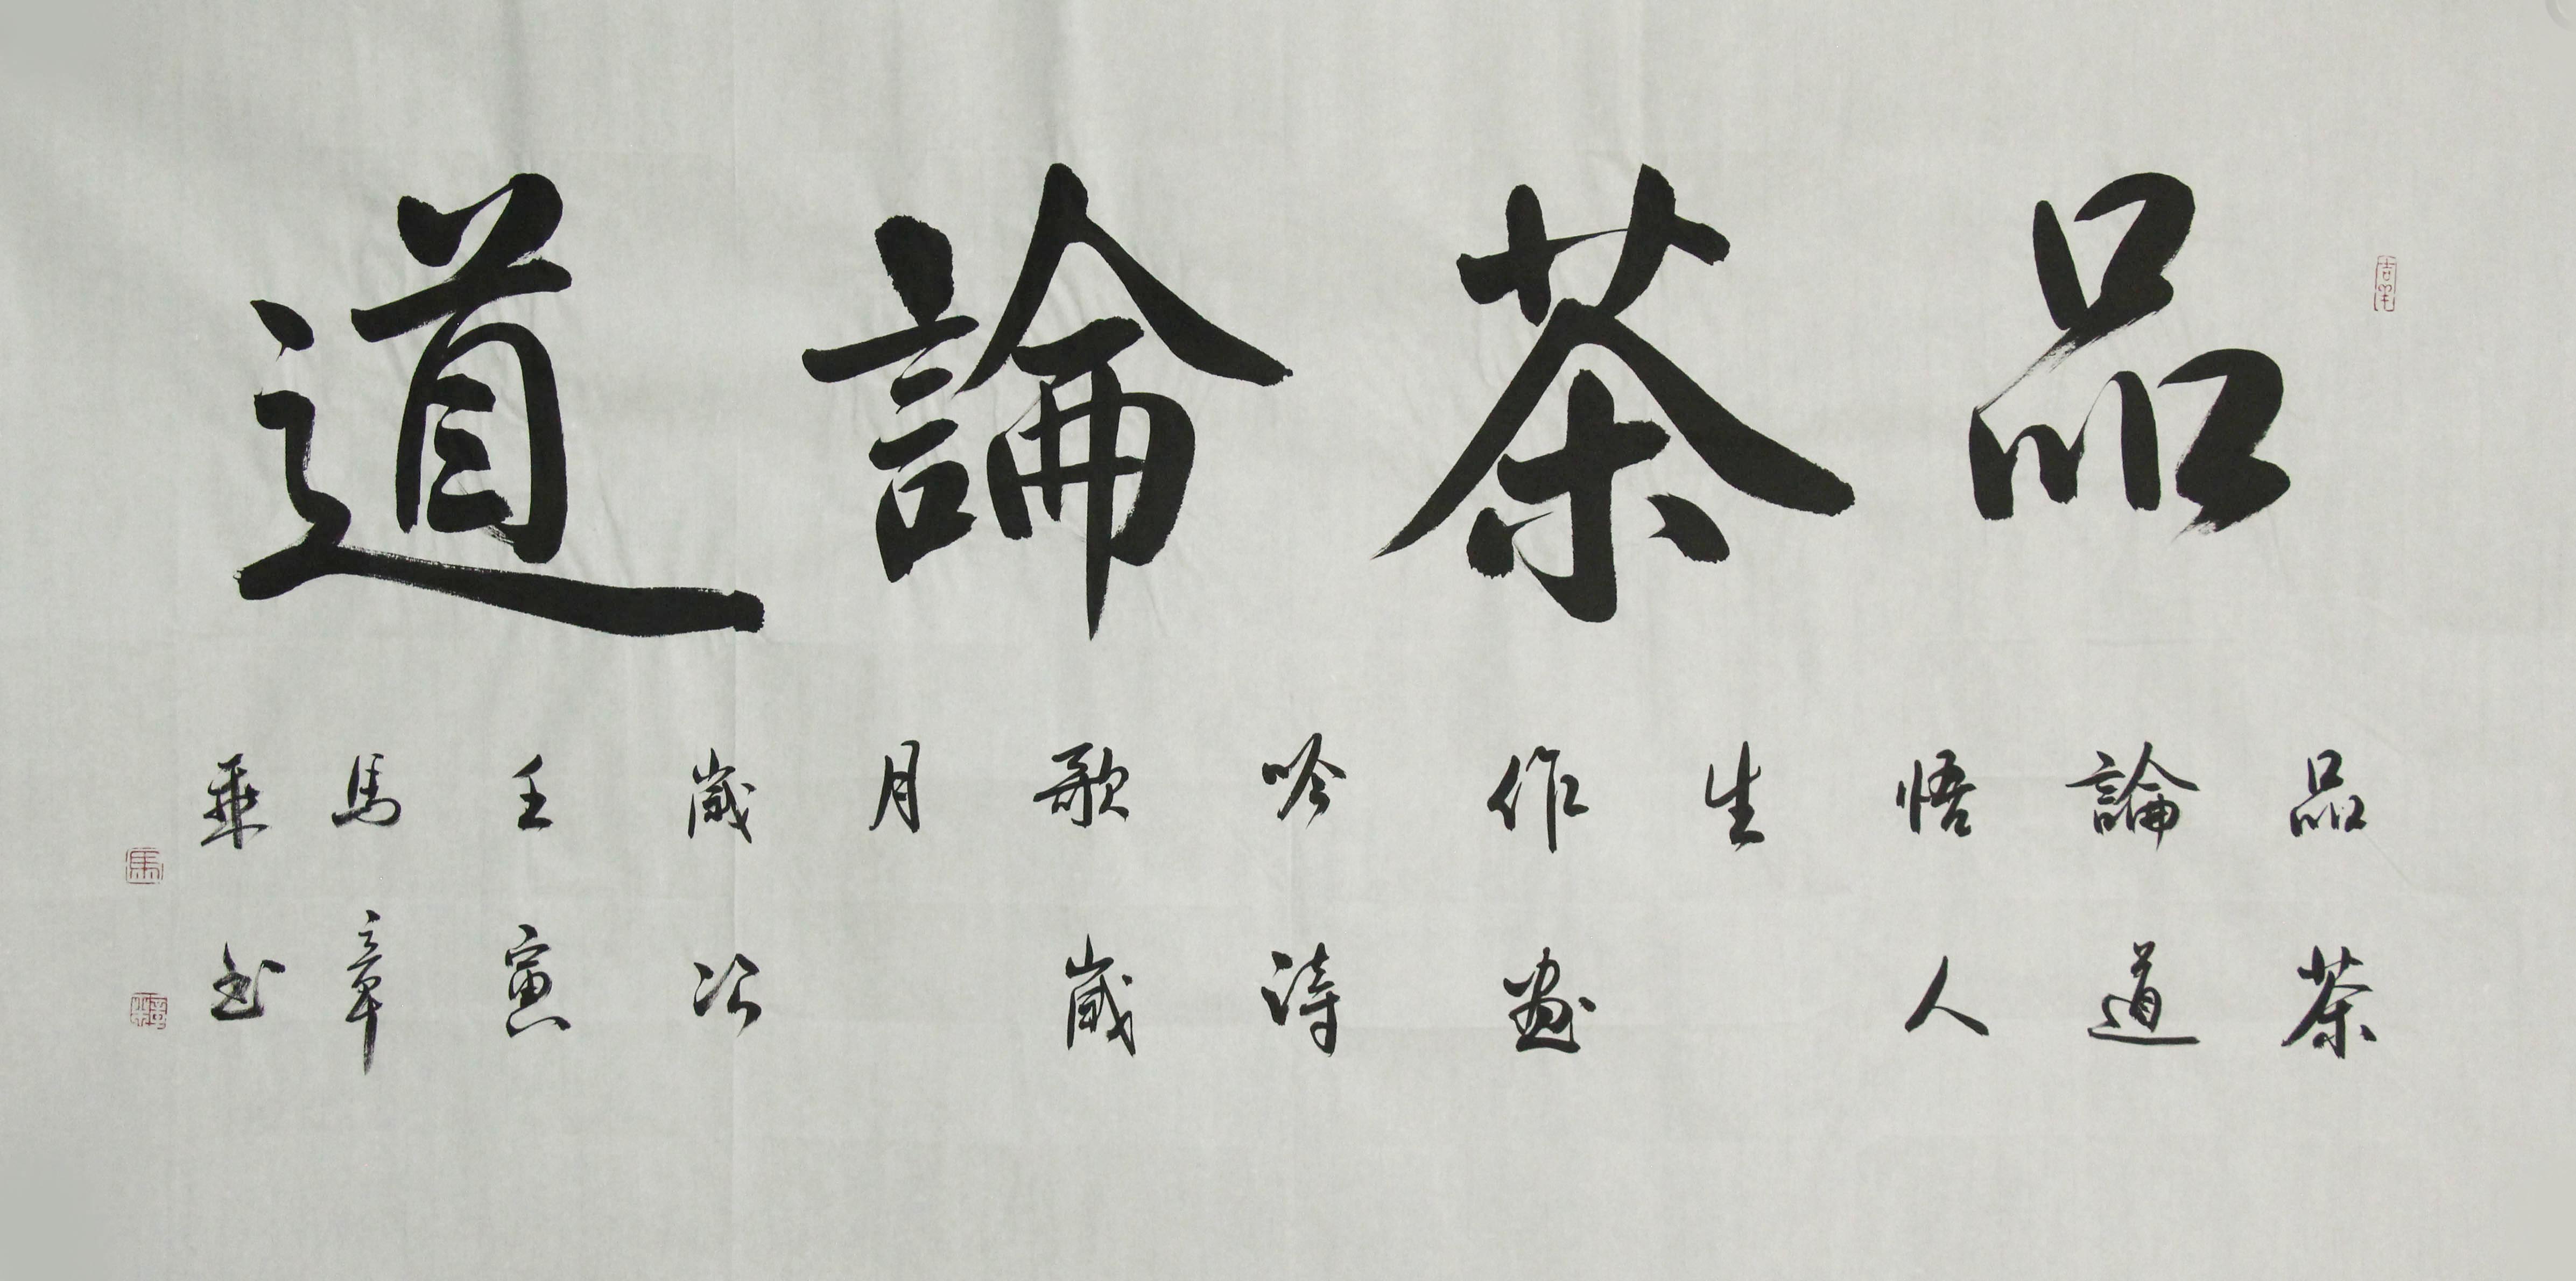 品茶論道
品茶
論道
悟人
生
作畫
吟詩
歌歲
月
歲次
壬寅
馬章
乘書
馬